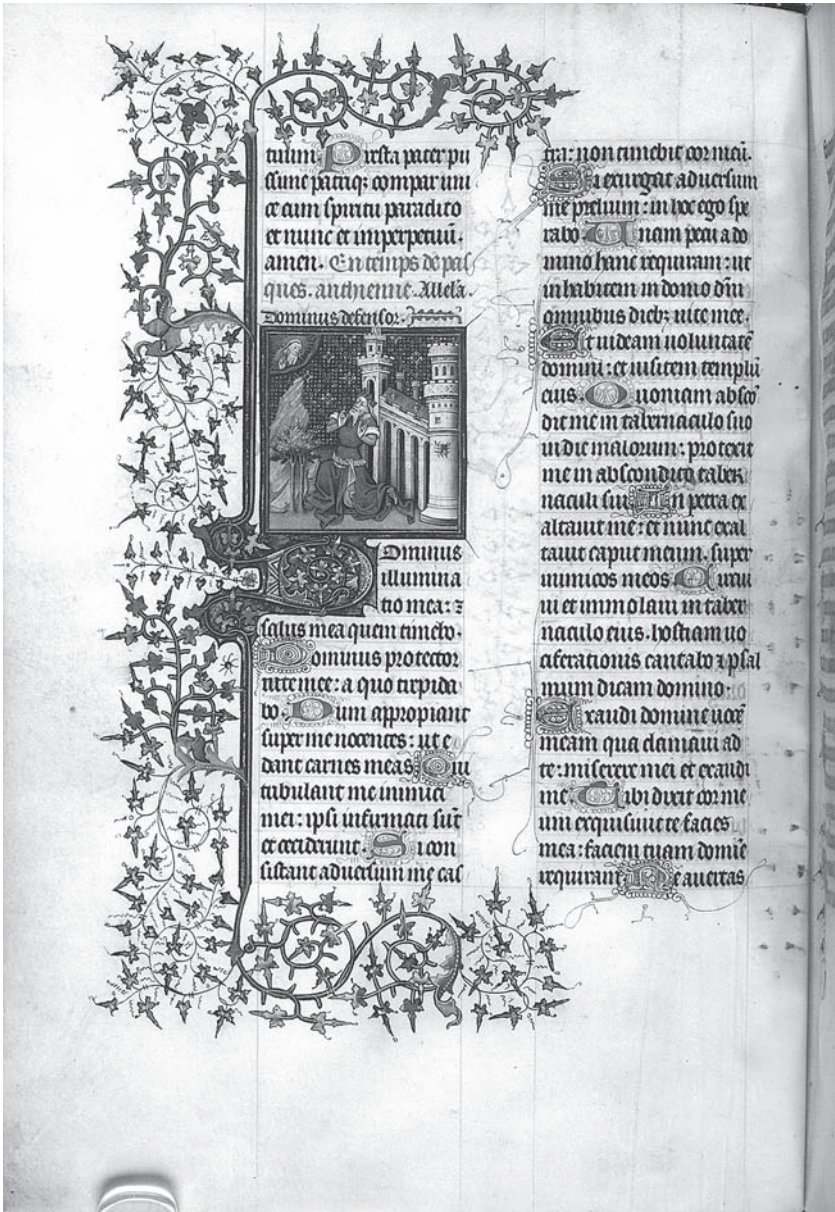 tuum. Presta pater pii
ssime patriq; compar uni
ce cum spiritu paraclito
et nunc et imperpetuū.
amen. En temps de pas
ques. anthienne. Allel'a
Dominus defensor.
Dominus
illumina
tio mea: ⁊
salus mea quem timebo.
Dominus protector
uite mee: a quo trepida
bo. Dum appropiant
super me nocentes: ut e
dant carnes meas Qui
tribulant me inimici
mei: ipsi infirmati sūt
et ceciderunt. Si con
sistant adversum me cas
tra: non timebit cor meū.
Si exurgat adversum
me prelium: in hoc ego spe
rabo Unam pecii a do
mino hanc requiram: ut
inhabitem in domo dn̄i
omnibus dieb; uite mee.
Et uideam uoluntatē
domini: et uisitem templū
eius. Quoniam absco̅
dit me in tabernaculo suo
in die malorum: protexit
me in abscondito taber
naculi sui In petra ex
altauit me: et nunc exal
tauit caput meum. super
inimicos meos Circui
ui et immolaui in taber
naculo eius. hostiam uo
ciferationis cantabo ⁊ psal
mum dicam domino.
Exaudi domine uocē
meam qua clamaui ad
te: miserere mei et exaudi
me. Tibi dixit cor me
um exquisiuit te facies
mea: faciem tuam domīe
requiram Ne auertas